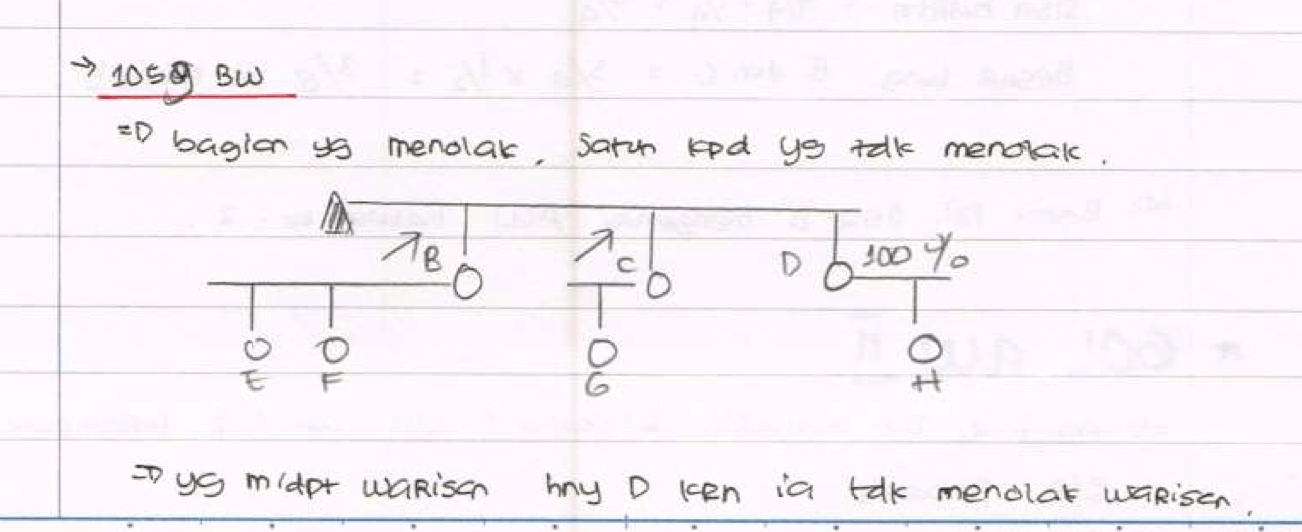 → 1059 BW
⇒ bagian yg menolak, jatuh kpd yg tdk menolak.
B C D 100 %
E F G H
⇒ yg m'dpt warisan hny D krn ia tdk menolak warisan.